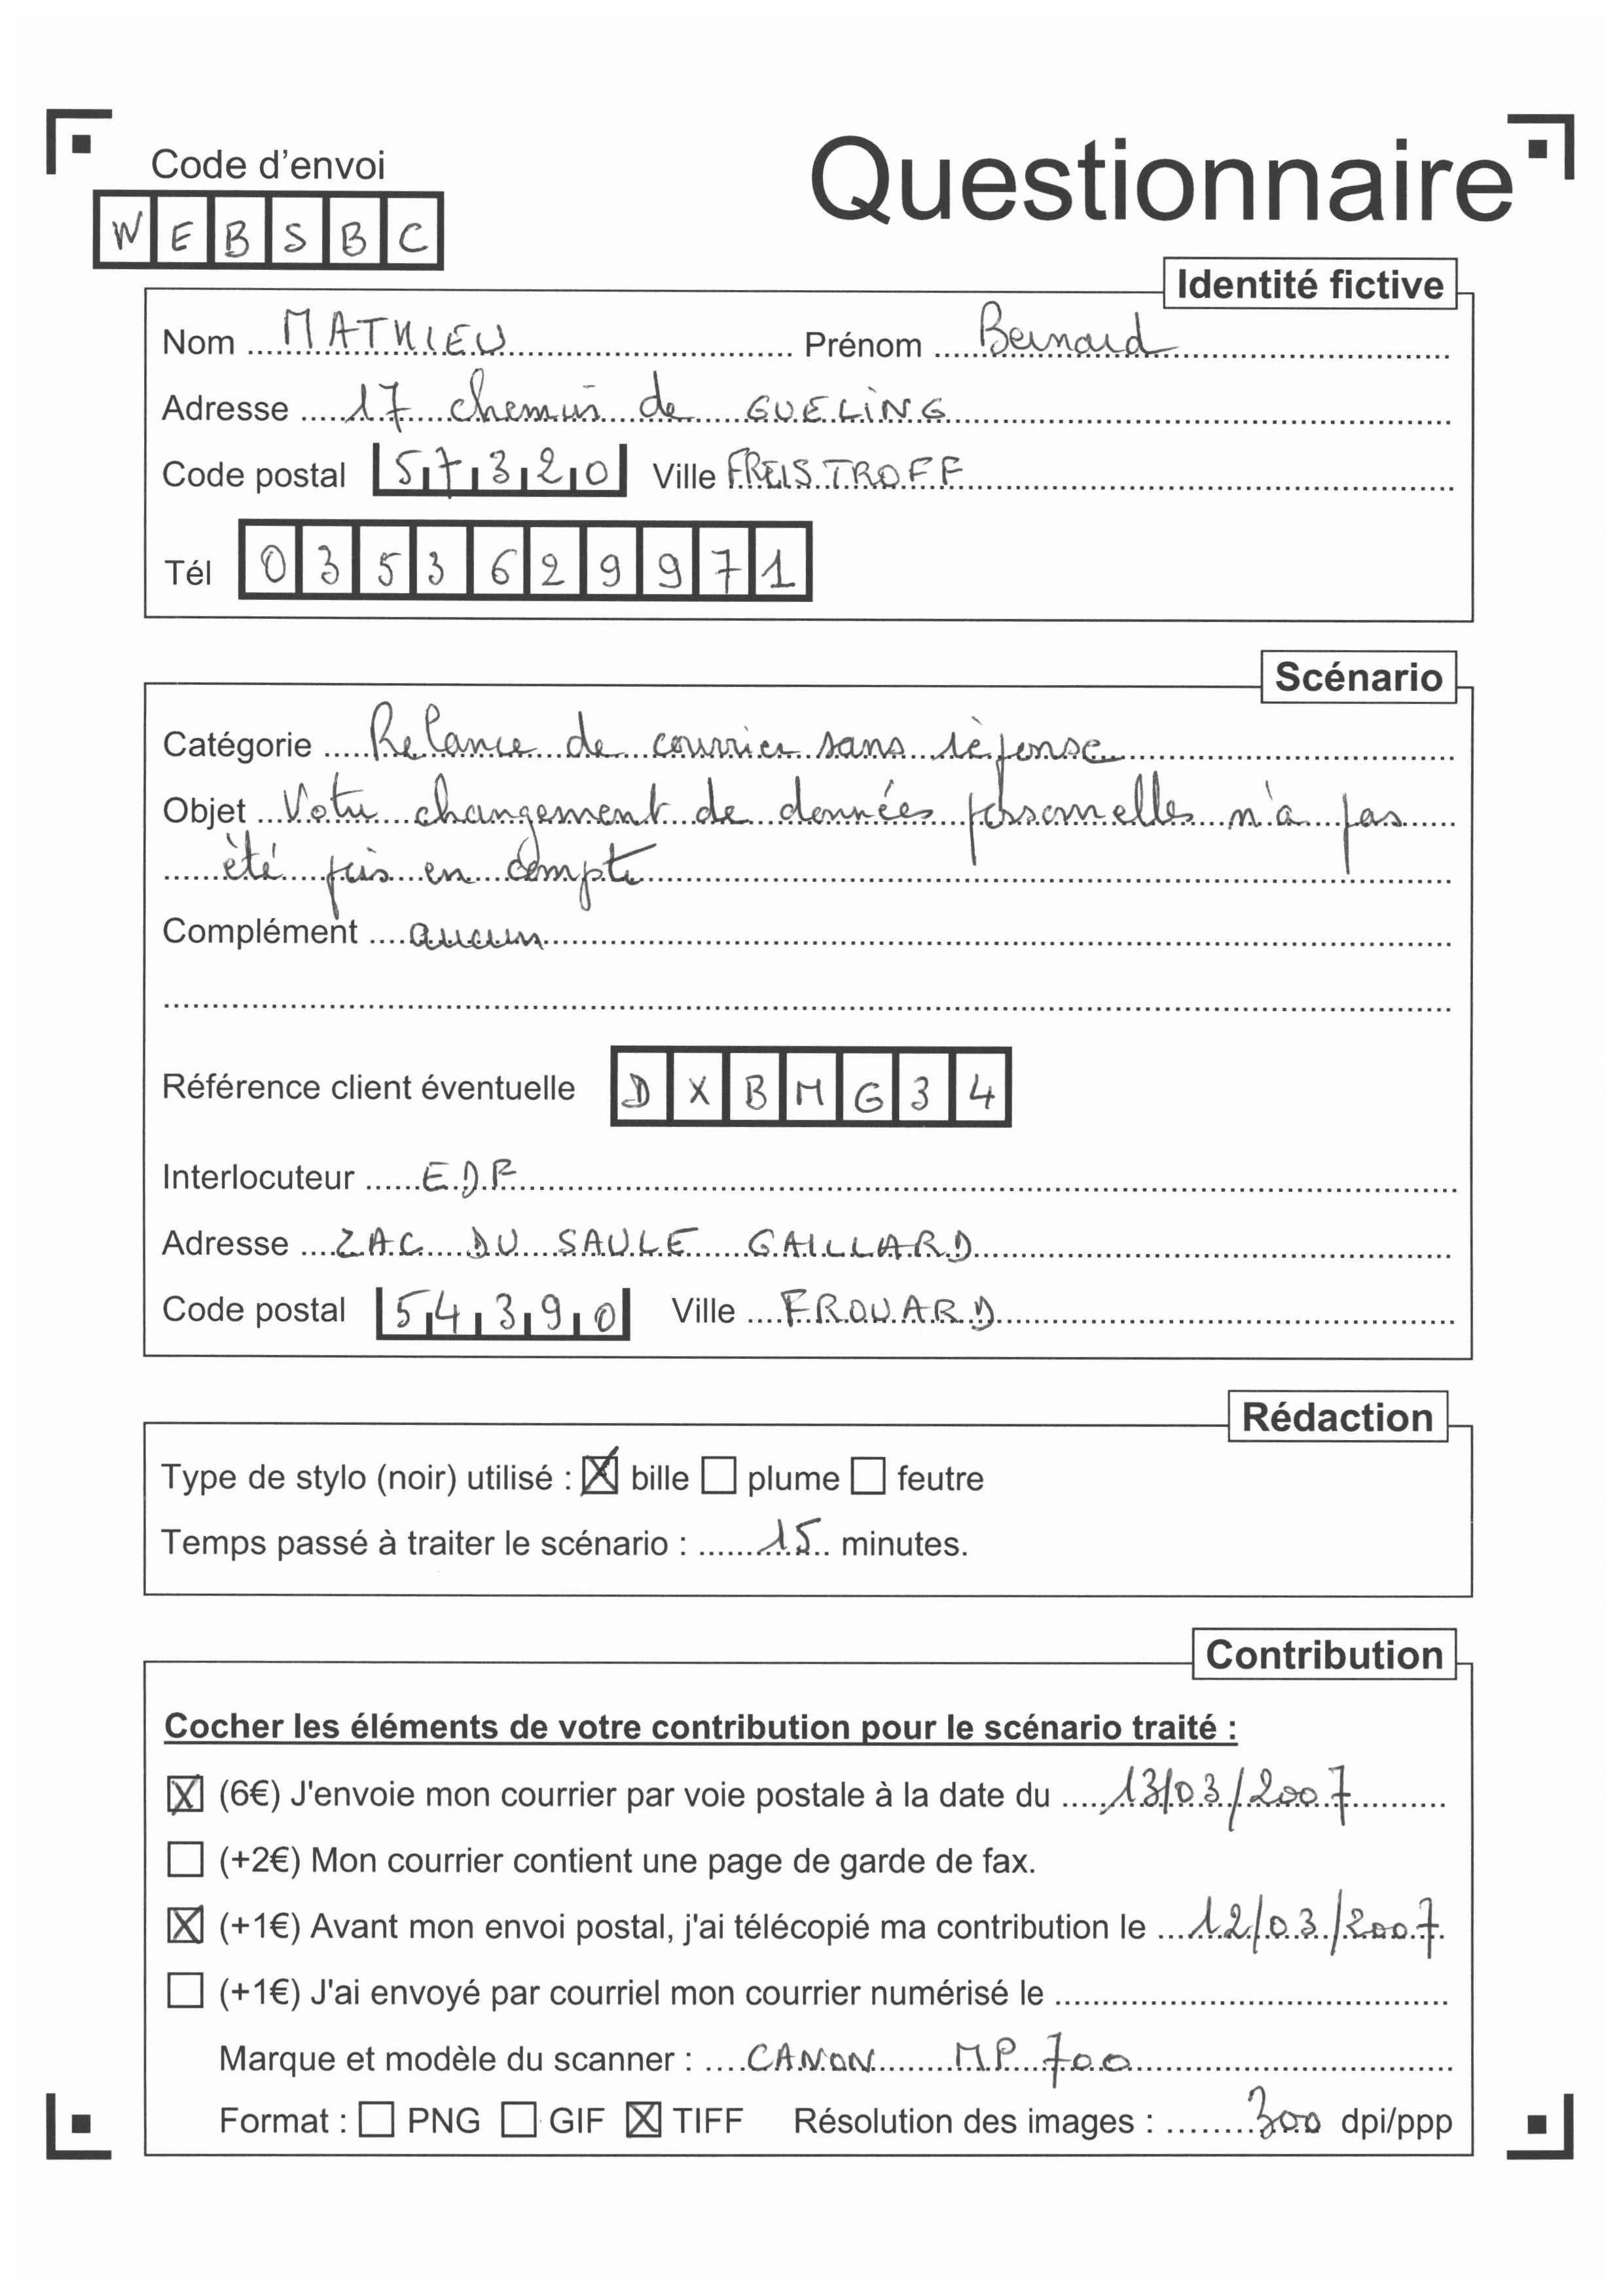 Code d'envoi
Questionnaire
W E B S B C
Identité fictive
Nom MATHIEU Prénom Bernard
Adresse 17 chemin de GUELING
Code postal 57320 Ville FREISTROFF
Tél 0353629971
Scénario
Catégorie Relance de courrier sans rèponse
Objet Votre changement de données personnelles n'a pas
été pris en compte
Complément aucun
Référence client éventuelle DXBMG34
Interlocuteur EDF
Adresse ZAC DU SAULE GAILLARD
Code postal 54390 Ville FROUARD
Rédaction
Type de stylo (noir) utilisé : ☒ bille ☐ plume ☐ feutre
Temps passé à traiter le scénario : 15 minutes.
Contribution
Cocher les éléments de votre contribution pour le scénario traité :
☒ (6€) J'envoie mon courrier par voie postale à la date du 13/03/2007
☐ (+2€) Mon courrier contient une page de garde de fax.
☒ (+1€) Avant mon envoi postal, j'ai télécopié ma contribution le 12/03/2007
☐ (+1€) J'ai envoyé par courriel mon courrier numérisé le
Marque et modèle du scanner : CANON MP 700
Format : ☐ PNG ☐ GIF ☒ TIFF Résolution des images : 300 dpi/ppp